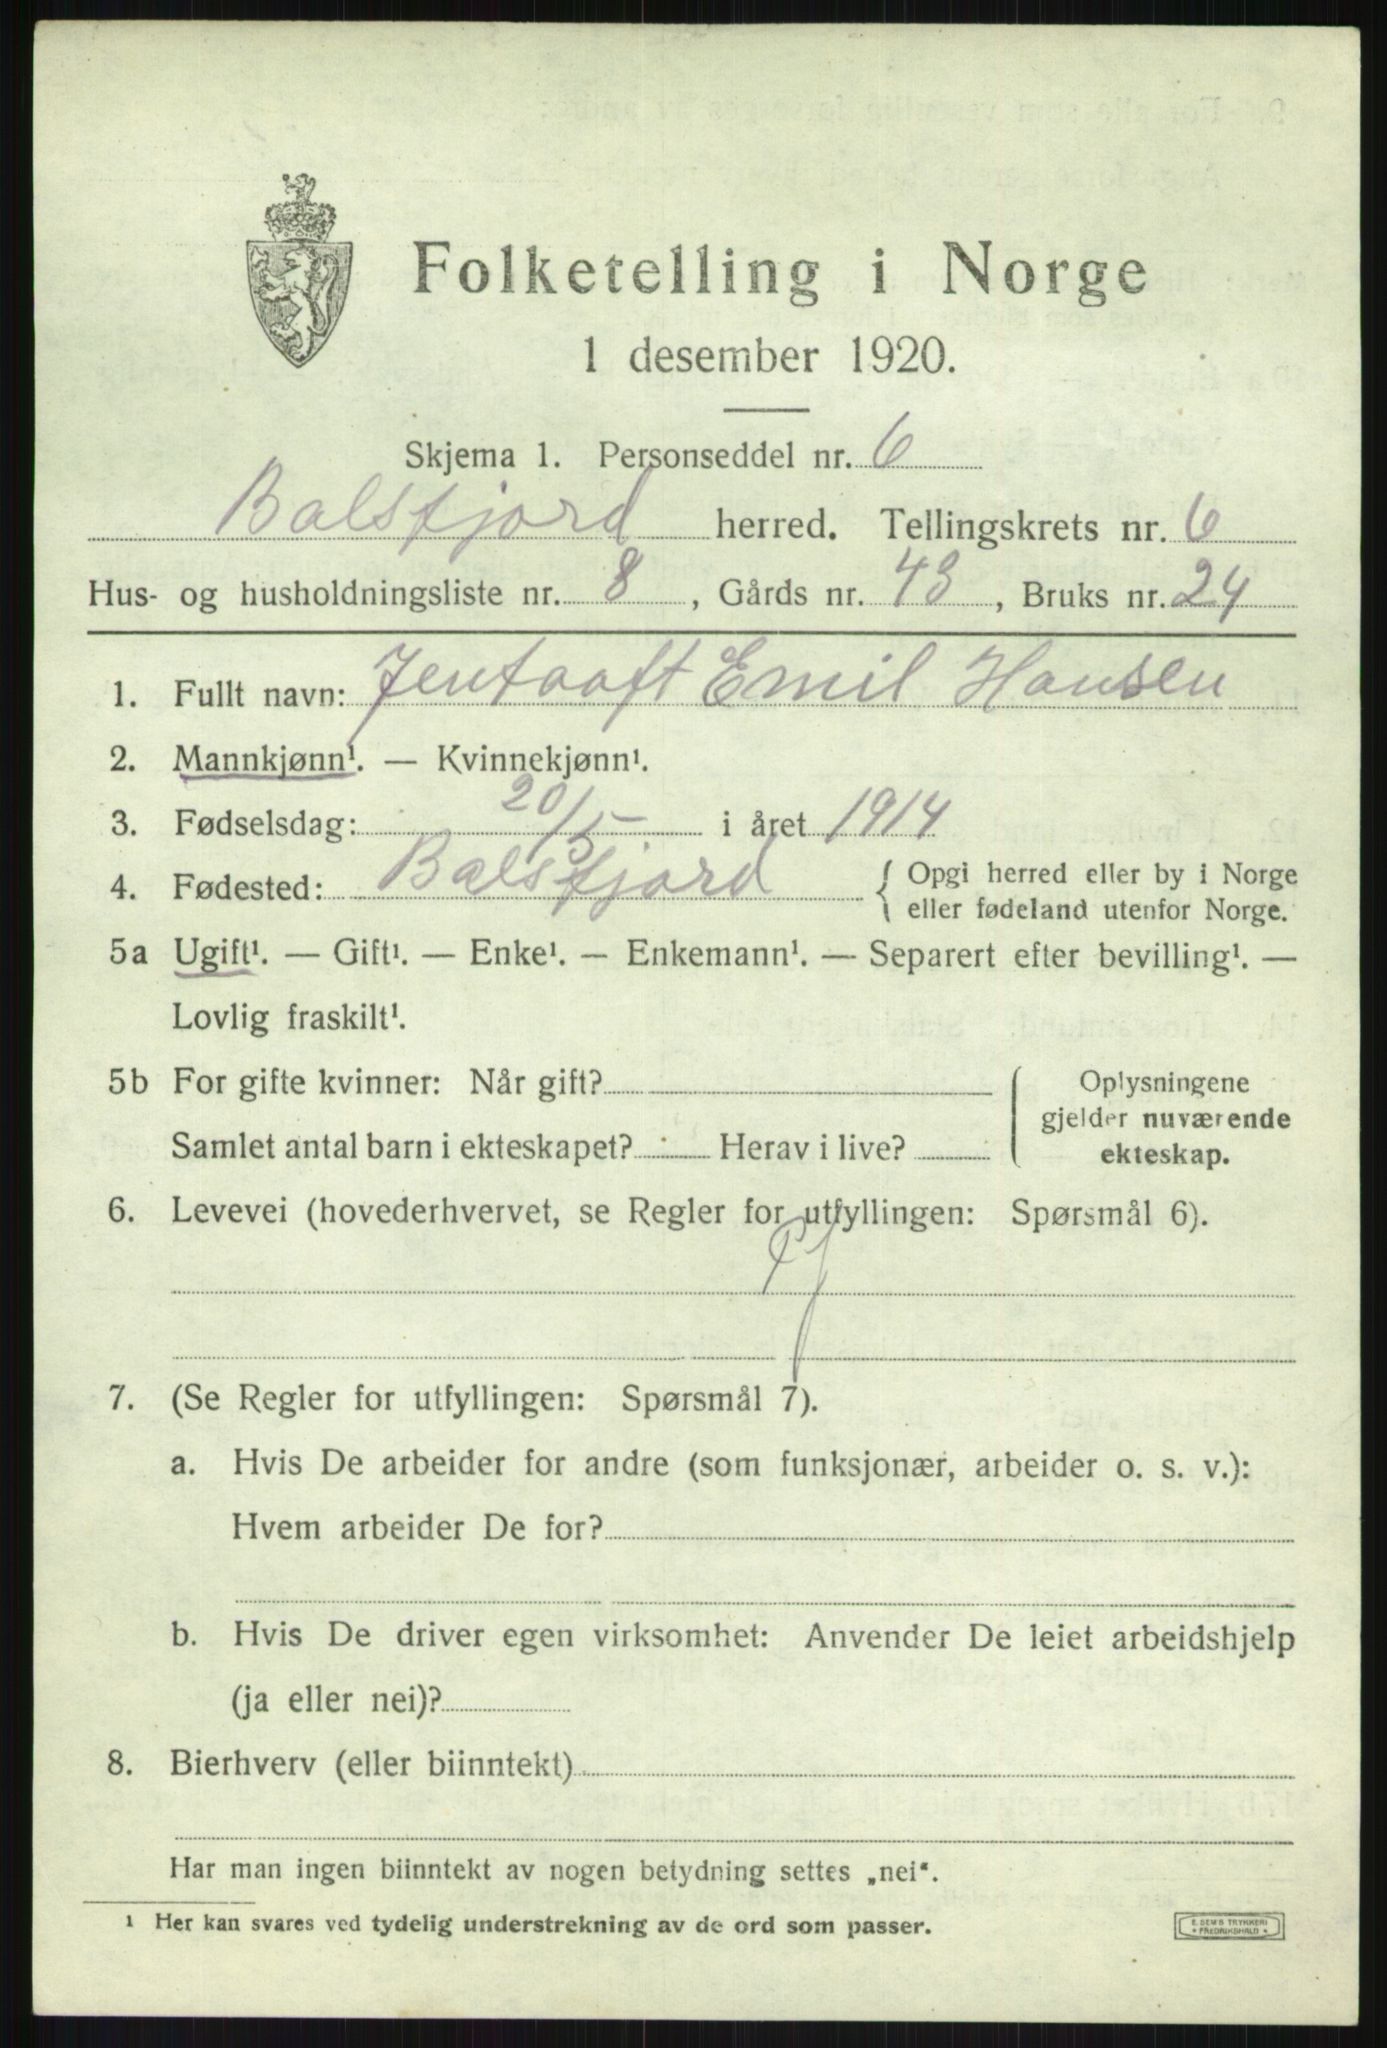 Folketelling i Norge
1 desember 1920.
Skjema 1. Personseddel nr. 6
Balsfjord herred. Tellingskrets nr. 6
Hus- og husholdningsliste nr. 8, Gårds nr. 43, Bruks nr. 24
1. Fullt navn: Jentooft Emil Hansen
2. Mannkjønn¹. — Kvinnekjønn¹.
3. Fødselsdag: 20/5 i året 1914
4. Fødested: Balsfjord { Opgi herred eller by i Norge
eller fødeland utenfor Norge.
5a Ugift¹. — Gift¹. — Enke¹. — Enkemann¹. — Separert efter bevilling¹. —
Lovlig fraskilt¹.
5b For gifte kvinner: Når gift?
Samlet antal barn i ekteskapet? Herav i live?
Oplysningene
gjelder nuværende
ekteskap.
6. Levevei (hovederhvervet, se Regler for utfyllingen: Spørsmål 6).
7. (Se Regler for utfyllingen: Spørsmål 7).
a. Hvis De arbeider for andre (som funksjonær, arbeider o. s. v.):
Hvem arbeider De for?
b. Hvis De driver egen virksomhet: Anvender De leiet arbeidshjelp
(ja eller nei)?
8. Bierhverv (eller biinntekt)
Har man ingen biinntekt av nogen betydning settes „nei“.
¹ Her kan svares ved tydelig understrekning av de ord som passer.
E. SEM'S TRYKKERI
* FREDRIKSHALD *